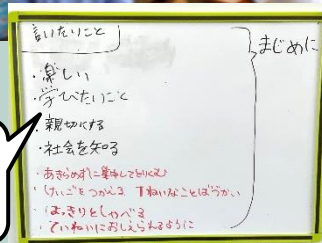 言いたいこと
まじめに
・楽しい
・学びたいこと
・親切にする
・社会を知る
・あきらめずに集中してとりくむ
・けいごをつかえる ていねいなことばづかい
・はっきりとしゃべる
・ていねいにおしえられるように